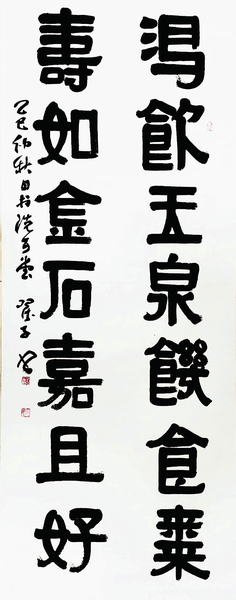 渴飲玉泉饑食棗
壽如金石嘉且好
乙巳初秋日於